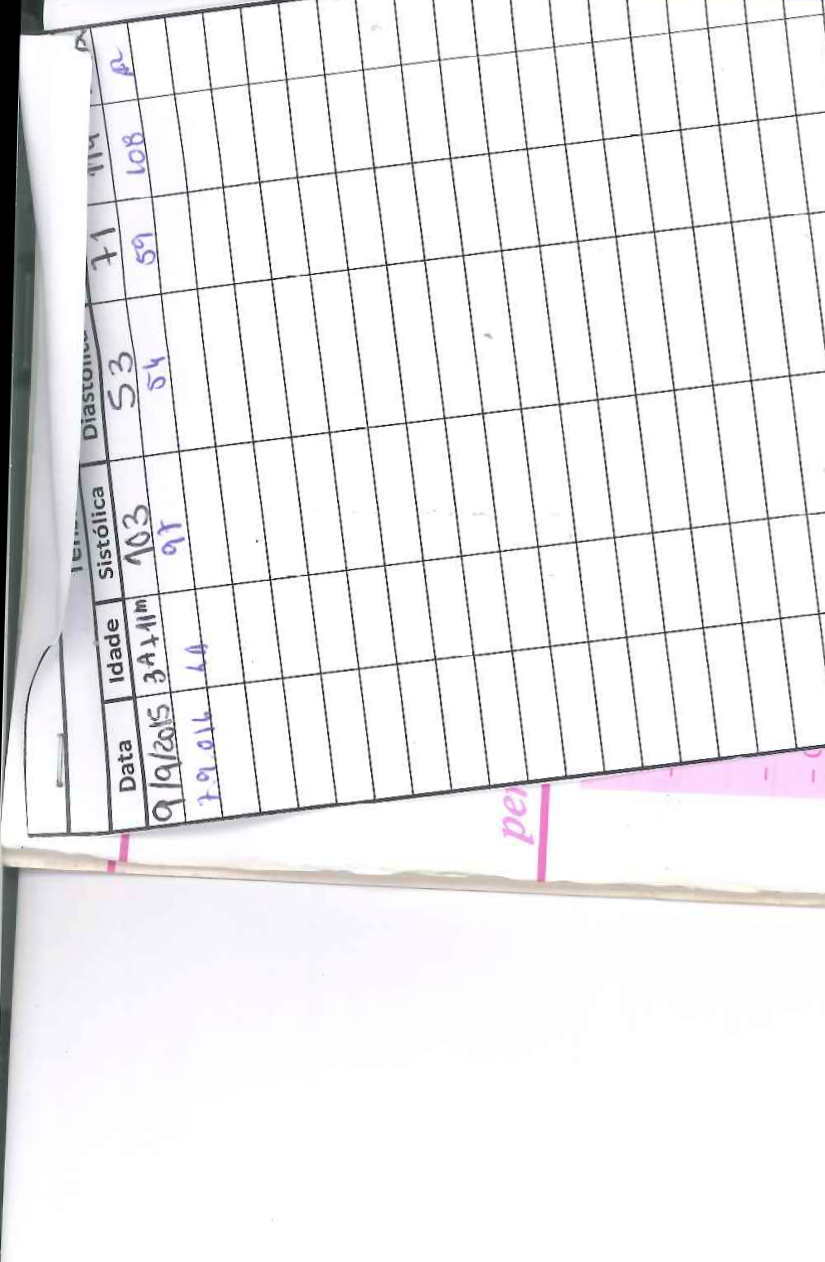 Data Idade Sistólica Diastólica
9/9/2015 3A+11m 103 53 71 114
7 9 016 4A 97 54 59 108
per